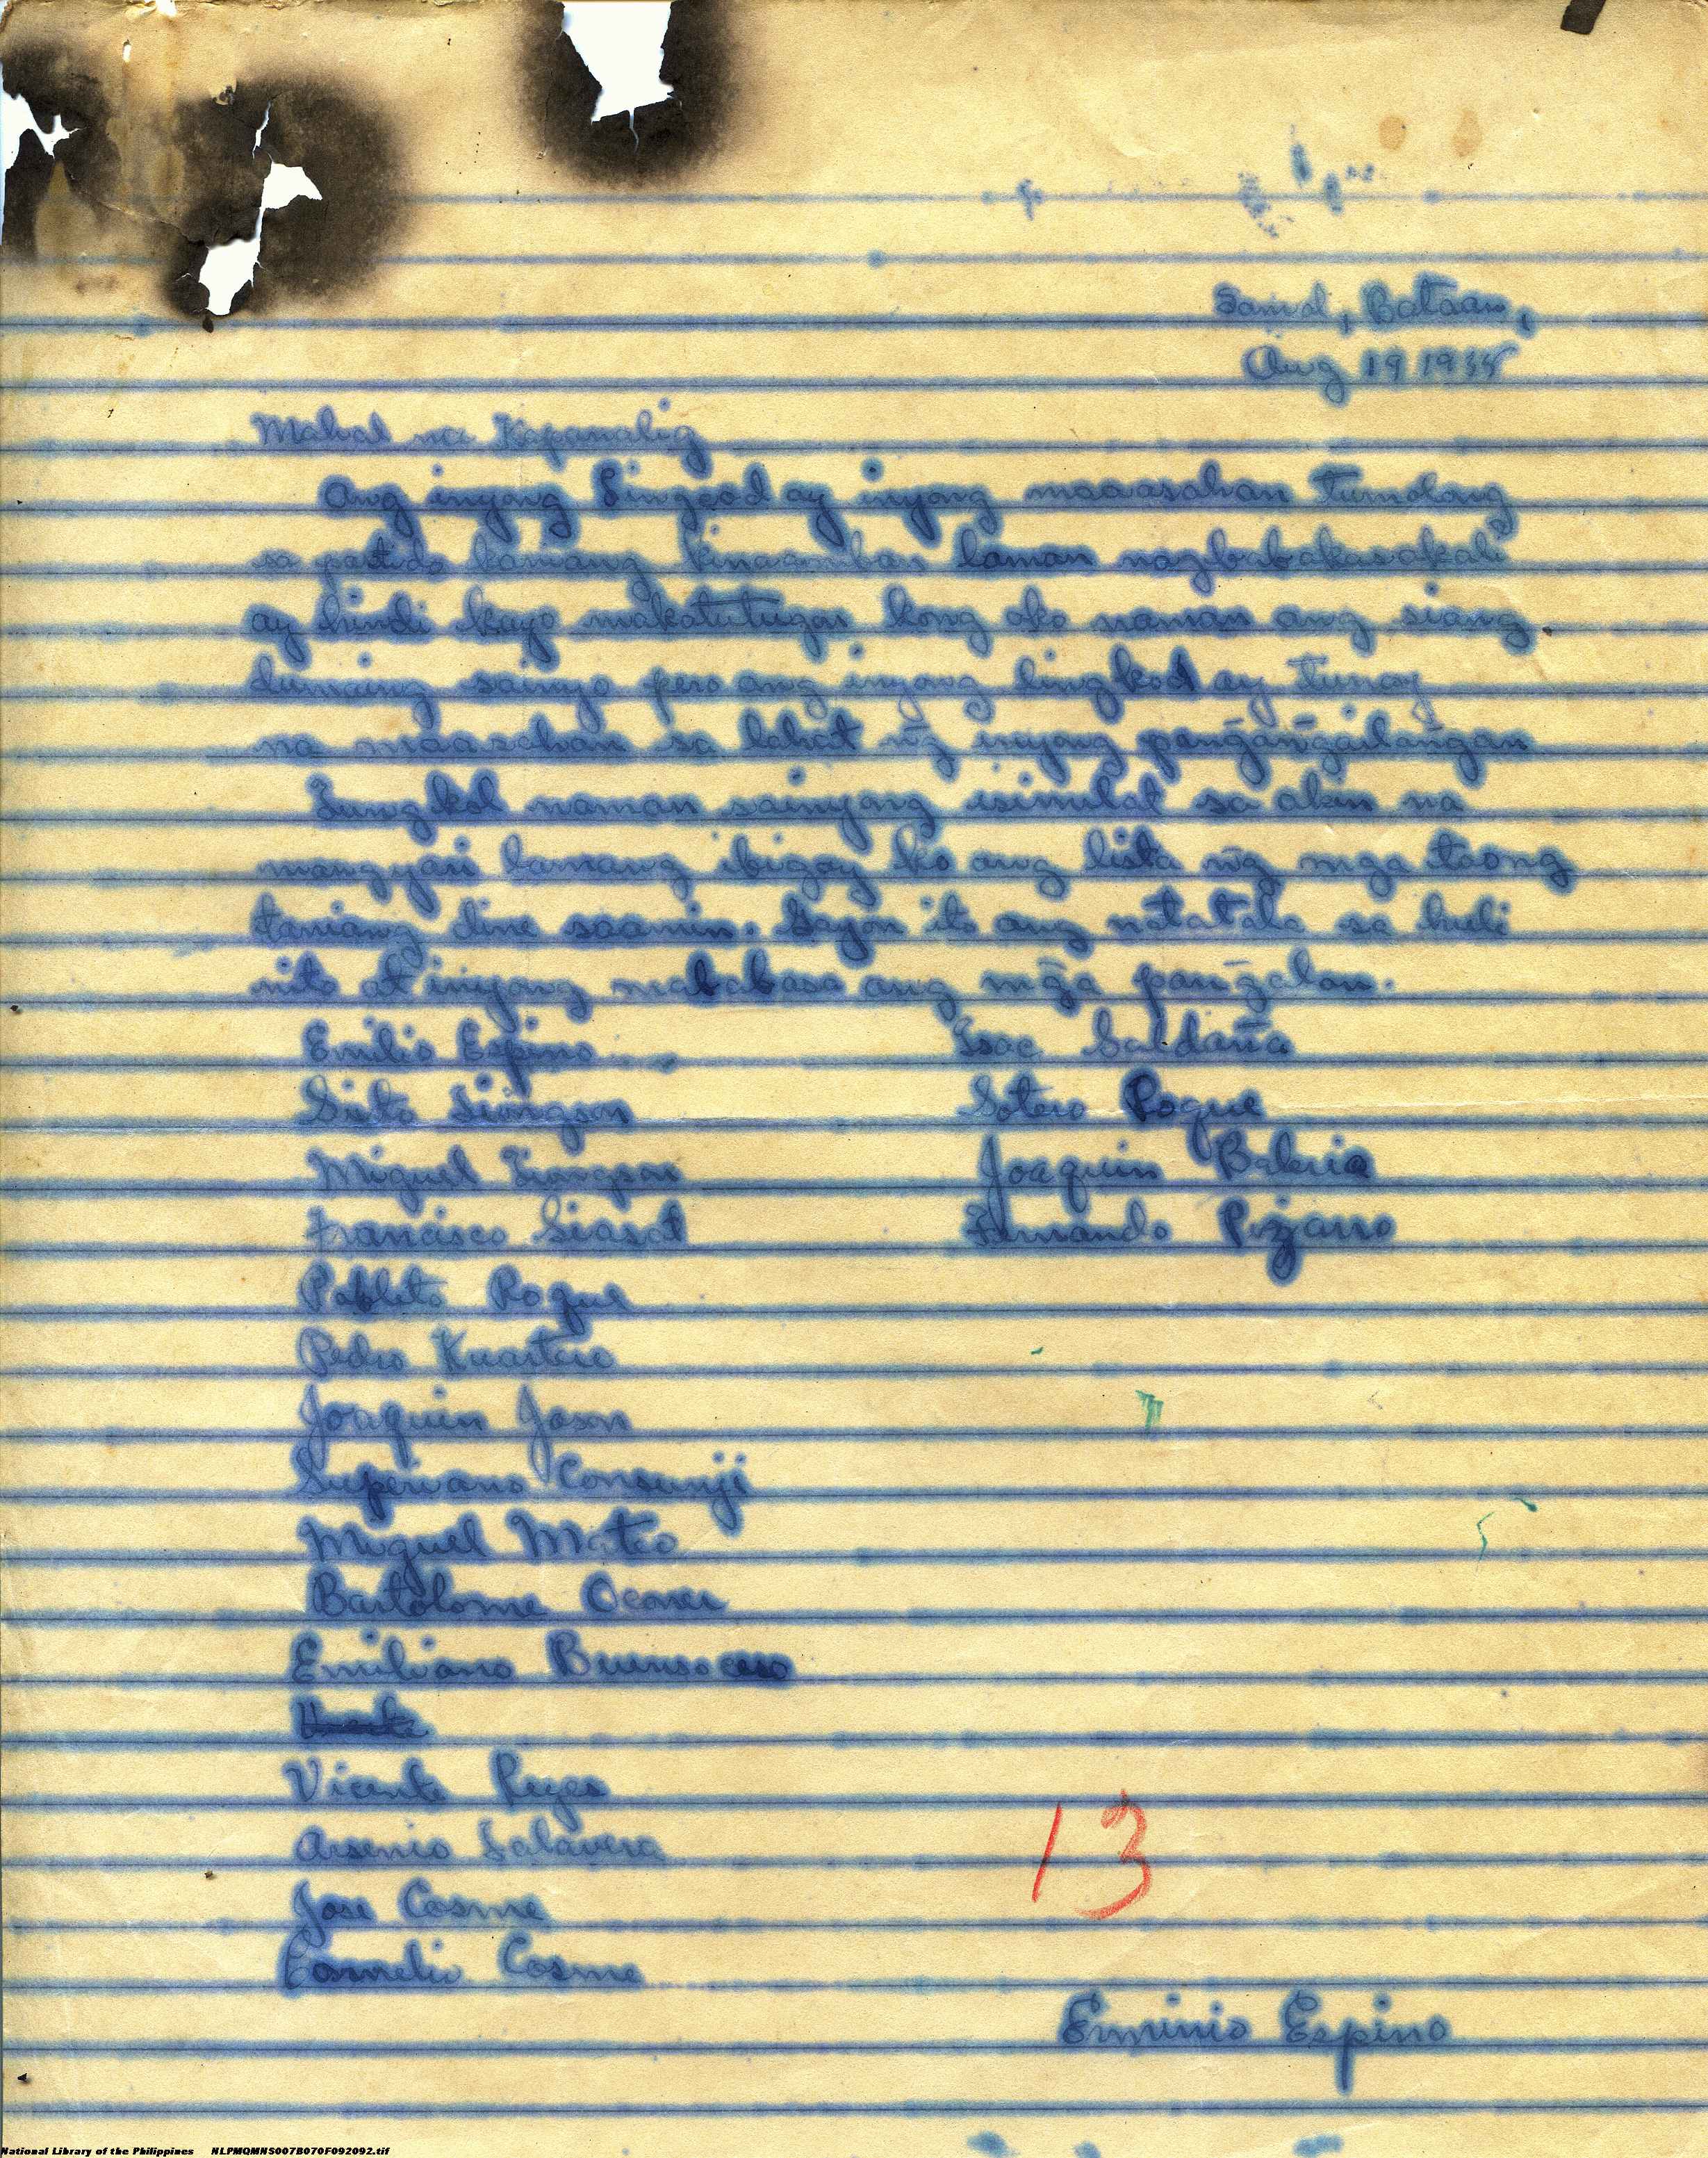 Samal, Bataan,
Aug 19 1935
Mahal na Kapanalig
Ang inyong lingcod ay inyong maaasahan tumolong
sa partido laman nagbabakasakali
ay hindi kayo makatutugon kong ako naman ang siang
dumaing sainyo pero ang inyong lingkod ay tunay
na maasahan sa lahat ng̃ inyong pang̃ang̃ailang̃an
Tungkol naman sainyong isinulat sa akin na
mangyari lamang ibigay ko ang lista ng̃ mga taong
taniang dine saamin. Gayon ito ang natatala sa huli
nito at inyong mababasa ang mg̃a pang̃alan.
Emilio Espino Isac Saldaña
Sixto Siongson Sotero Roque
Miguel Tiongson Joaquin Baleria
Francisco Siasat Fernando Pizarro
Pableto Roque
Pedro Kuarteio
Joaquin Jason
Superiano Consunji
Miguel Mateo
Bartolome
Emiliano Buensoceso
Vicente Reyes
Arsenio Salavera
Jose Cosme
Cornelio Cosme
13
Erminio Espino
National Library of the Philippines NLPMQMNS007B070F092092.tif